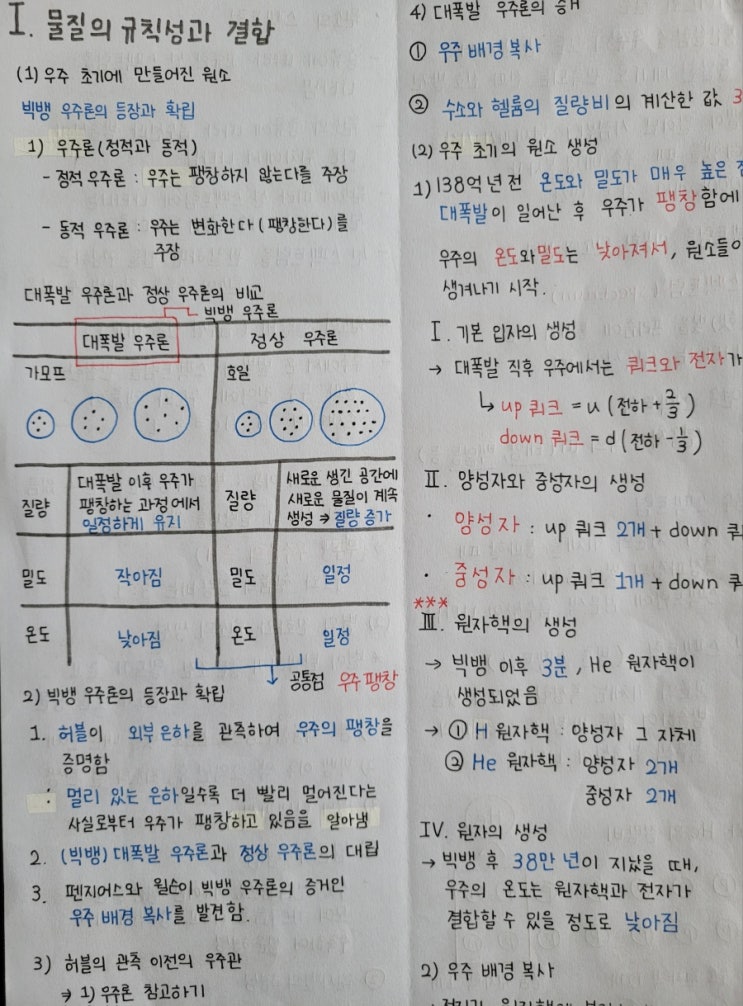 I. 물질의 규칙성과 결합
(1) 우주 초기에 만들어진 원소
빅뱅 우주론의 등장과 확립
1) 우주론(정적과 동적)
- 정적 우주론 : 우주는 팽창하지 않는다를 주장
- 동적 우주론 : 우주는 변화한다(팽창한다)를
주장
대폭발 우주론과 정상 우주론의 비교
빅뱅 우주론
대폭발 우주론 정상 우주론
가모프 호일
질량 대폭발 이후 우주가
팽창하는 과정에서
일정하게 유지
질량 새로운 생긴 공간에
새로운 물질이 계속
생성 ⇒ 질량 증가
밀도 작아짐 밀도 일정
온도 낮아짐 온도 일정
공통점 우주 팽창
2) 빅뱅 우주론의 등장과 확립
1. 허블이 외부 은하를 관측하여 우주의 팽창을
증명함
: 멀리 있는 은하일수록 더 빨리 멀어진다는
사실로부터 우주가 팽창하고 있음을 알아냄
2. (빅뱅) 대폭발 우주론과 정상 우주론의 대립
3. 펜지어스와 윌슨이 빅뱅 우주론의 증거인
우주 배경 복사를 발견함.
3) 허블의 관측 이전의 우주관
⇒ 1) 우주론 참고하기
4) 대폭발 우주론의
① 우주 배경 복사
② 수소와 헬륨의 질량비의 계산한 값 3
(2) 우주 초기의 원소 생성
1) 138억 년 전 온도와 밀도가 매우 높은
대폭발이 일어난 후 우주가 팽창함에
우주의 온도와 밀도는 낮아져서, 원소들이
생겨나기 시작.
I. 기본 입자의 생성
→ 대폭발 직후 우주에서는 쿼크와 전자가
↳ up 쿼크 = u (전하 +2/3)
down 쿼크 = d (전하 -1/3)
II. 양성자와 중성자의 생성
· 양성자 : up 쿼크 2개 + down
· 중성자 : up 쿼크 1개 + down
***
III. 원자핵의 생성
→ 빅뱅 이후 3분, He 원자핵이
생성되었음
→ ① H 원자핵 : 양성자 그 자체
② He 원자핵 : 양성자 2개
중성자 2개
IV. 원자의 생성
→ 빅뱅 후 38만 년이 지났을 때,
우주의 온도는 원자핵과 전자가
결합할 수 있을 정도로 낮아짐
2) 우주 배경 복사